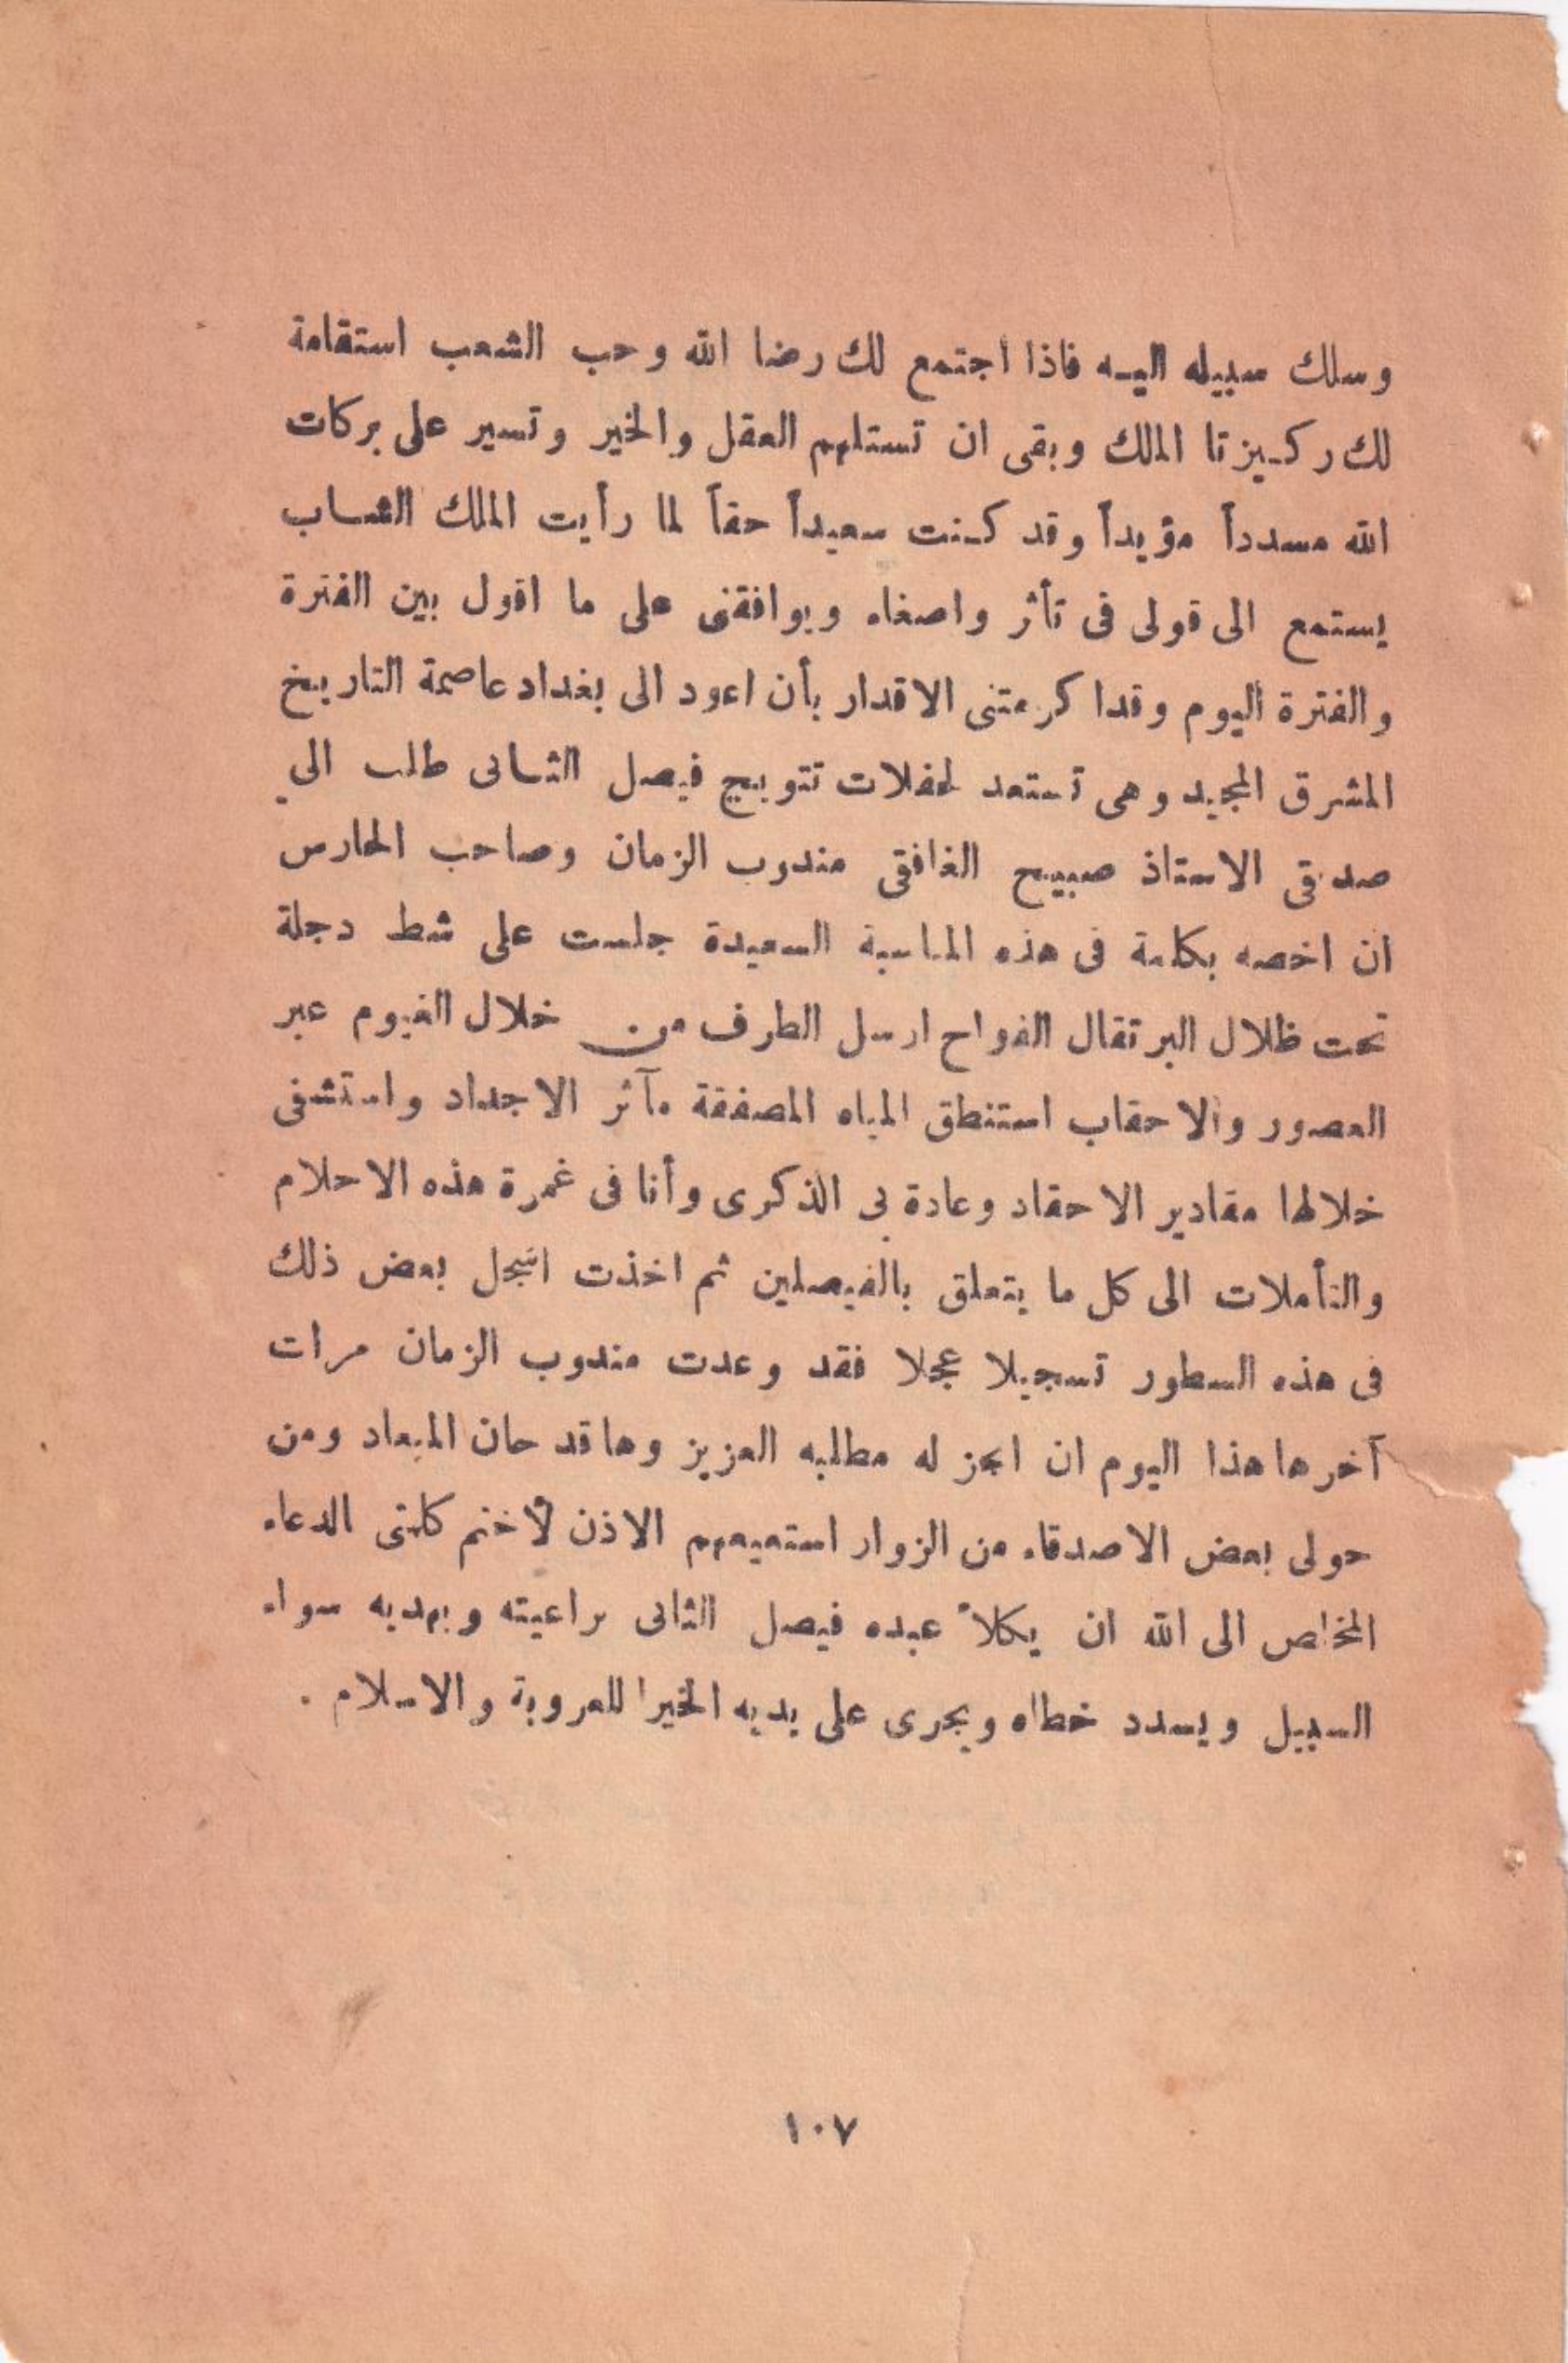 وسلك سبيله اليه فاذا اجتمع لك رضا الله وحب الشعب استقامة
لك ركيزتا الملك وبقى ان تستلهم العقل والخير وتسير على بركات
الله مسدداً مؤيداً وقد كنت سعيداً حقاً لما رأيت الملك الشاب
يستمع الى قولى فى تأثر واصغاء ويوافقنى على ما اقول بين الفترة
والفترة اليوم وقد اكرمتنى الاقدار بأن اعود الى بغداد عاصمة التاريخ
المشرق المجيد وهى تستعد لحفلات تتويج فيصل الثانى طلب الي
صديقى الاستاذ صبيح الغافقى مندوب الزمان وصاحب الحارس
ان اخصه بكلمة فى هذه المناسبة السعيدة جلست على شط دجلة
تحت ظلال البرتقال الفواح ارسل الطرف من خلال الغيوم عبر
العصور والاحقاب استنطق المياه المصفقة مآثر الاجداد واستشفى
خلالها مقادير الاحقاد وعادة بى الذكرى وأنا فى غمرة هذه الاحلام
والتأملات الى كل ما يتعلق بالفيصلين ثم اخذت اسجل بعض ذلك
فى هذه السطور تسجيلا عجلا فقد وعدت مندوب الزمان مرات
آخرها هذا اليوم ان انجز له مطلبه العزيز وها قد حان الميعاد ومن
حولى بعض الاصدقاء من الزوار استميحهم الاذن لأختم كلمتى الدعاء
المخلص الى الله ان يكلأ عبده فيصل الثانى براعيته ويهديه سواء
السبيل ويسدد خطاه ويجرى على يديه الخيرا للعروبة والاسلام .
١٠٧